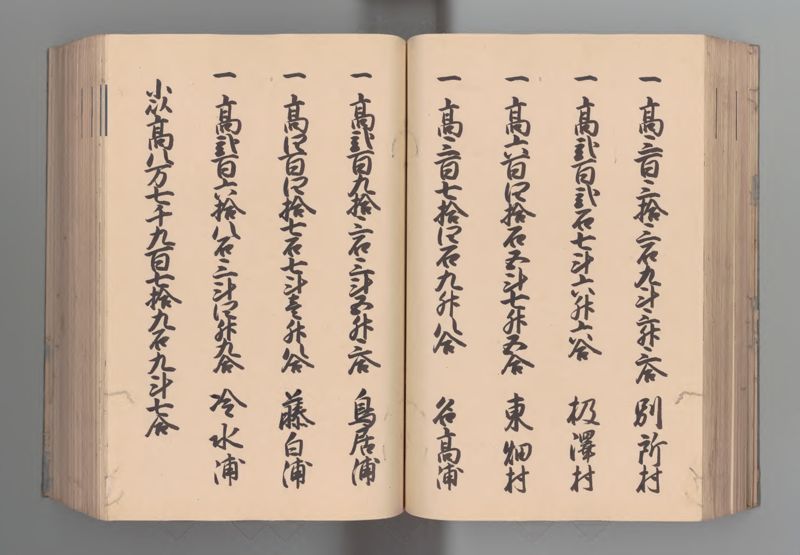 一高三百三拾三石九斗三升三合 別所村
一高弐百弐石七斗六升六合 扱澤村
一高六百四拾石五斗七升五合 東畑村
一高三百七拾四石九升八合 名高浦
一高弐百九拾三石三斗五升三合 鳥居浦
一高四百四拾七石七斗壱升八合 藤白浦
一高弐百六拾八石三斗四升九合 冷水浦
小以高八万七千九百七拾九石九斗七合